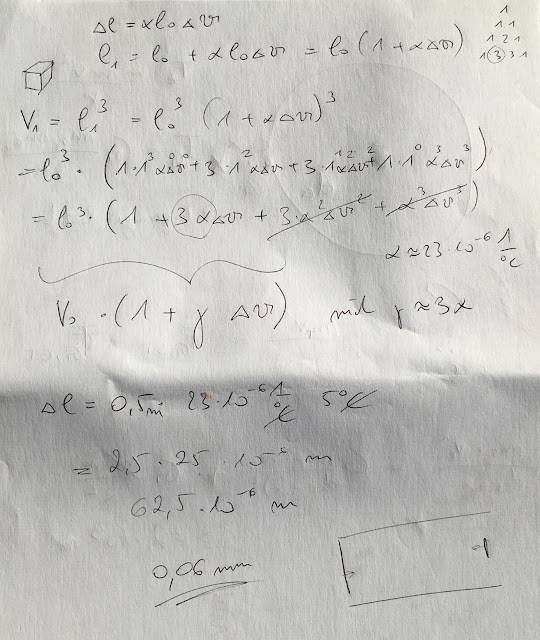 Δl = αl₀Δϑ
l₁ = l₀ + αl₀Δϑ = l₀(1 + αΔϑ)
1
1 1
1 2 1
1 3 3 1
V₁ = l₁³ = l₀³ (1 + αΔϑ)³
= l₀³ · (1·1³α⁰Δϑ⁰ + 3·1²αΔϑ + 3·1¹α²Δϑ² + 1·1⁰α³Δϑ³)
= l₀³ · (1 + 3αΔϑ + 3·α²Δϑ² + α³Δϑ³)
α ≈ 23·10⁻⁶ 1/°C
V₀ · (1 + γ Δϑ) mit γ ≈ 3α
Δl = 0,5m 23·10⁻⁶ 1/°C 5°C
= 2,5 · 25 · 10⁻⁶ m
62,5 · 10⁻⁶ m
0,06 mm